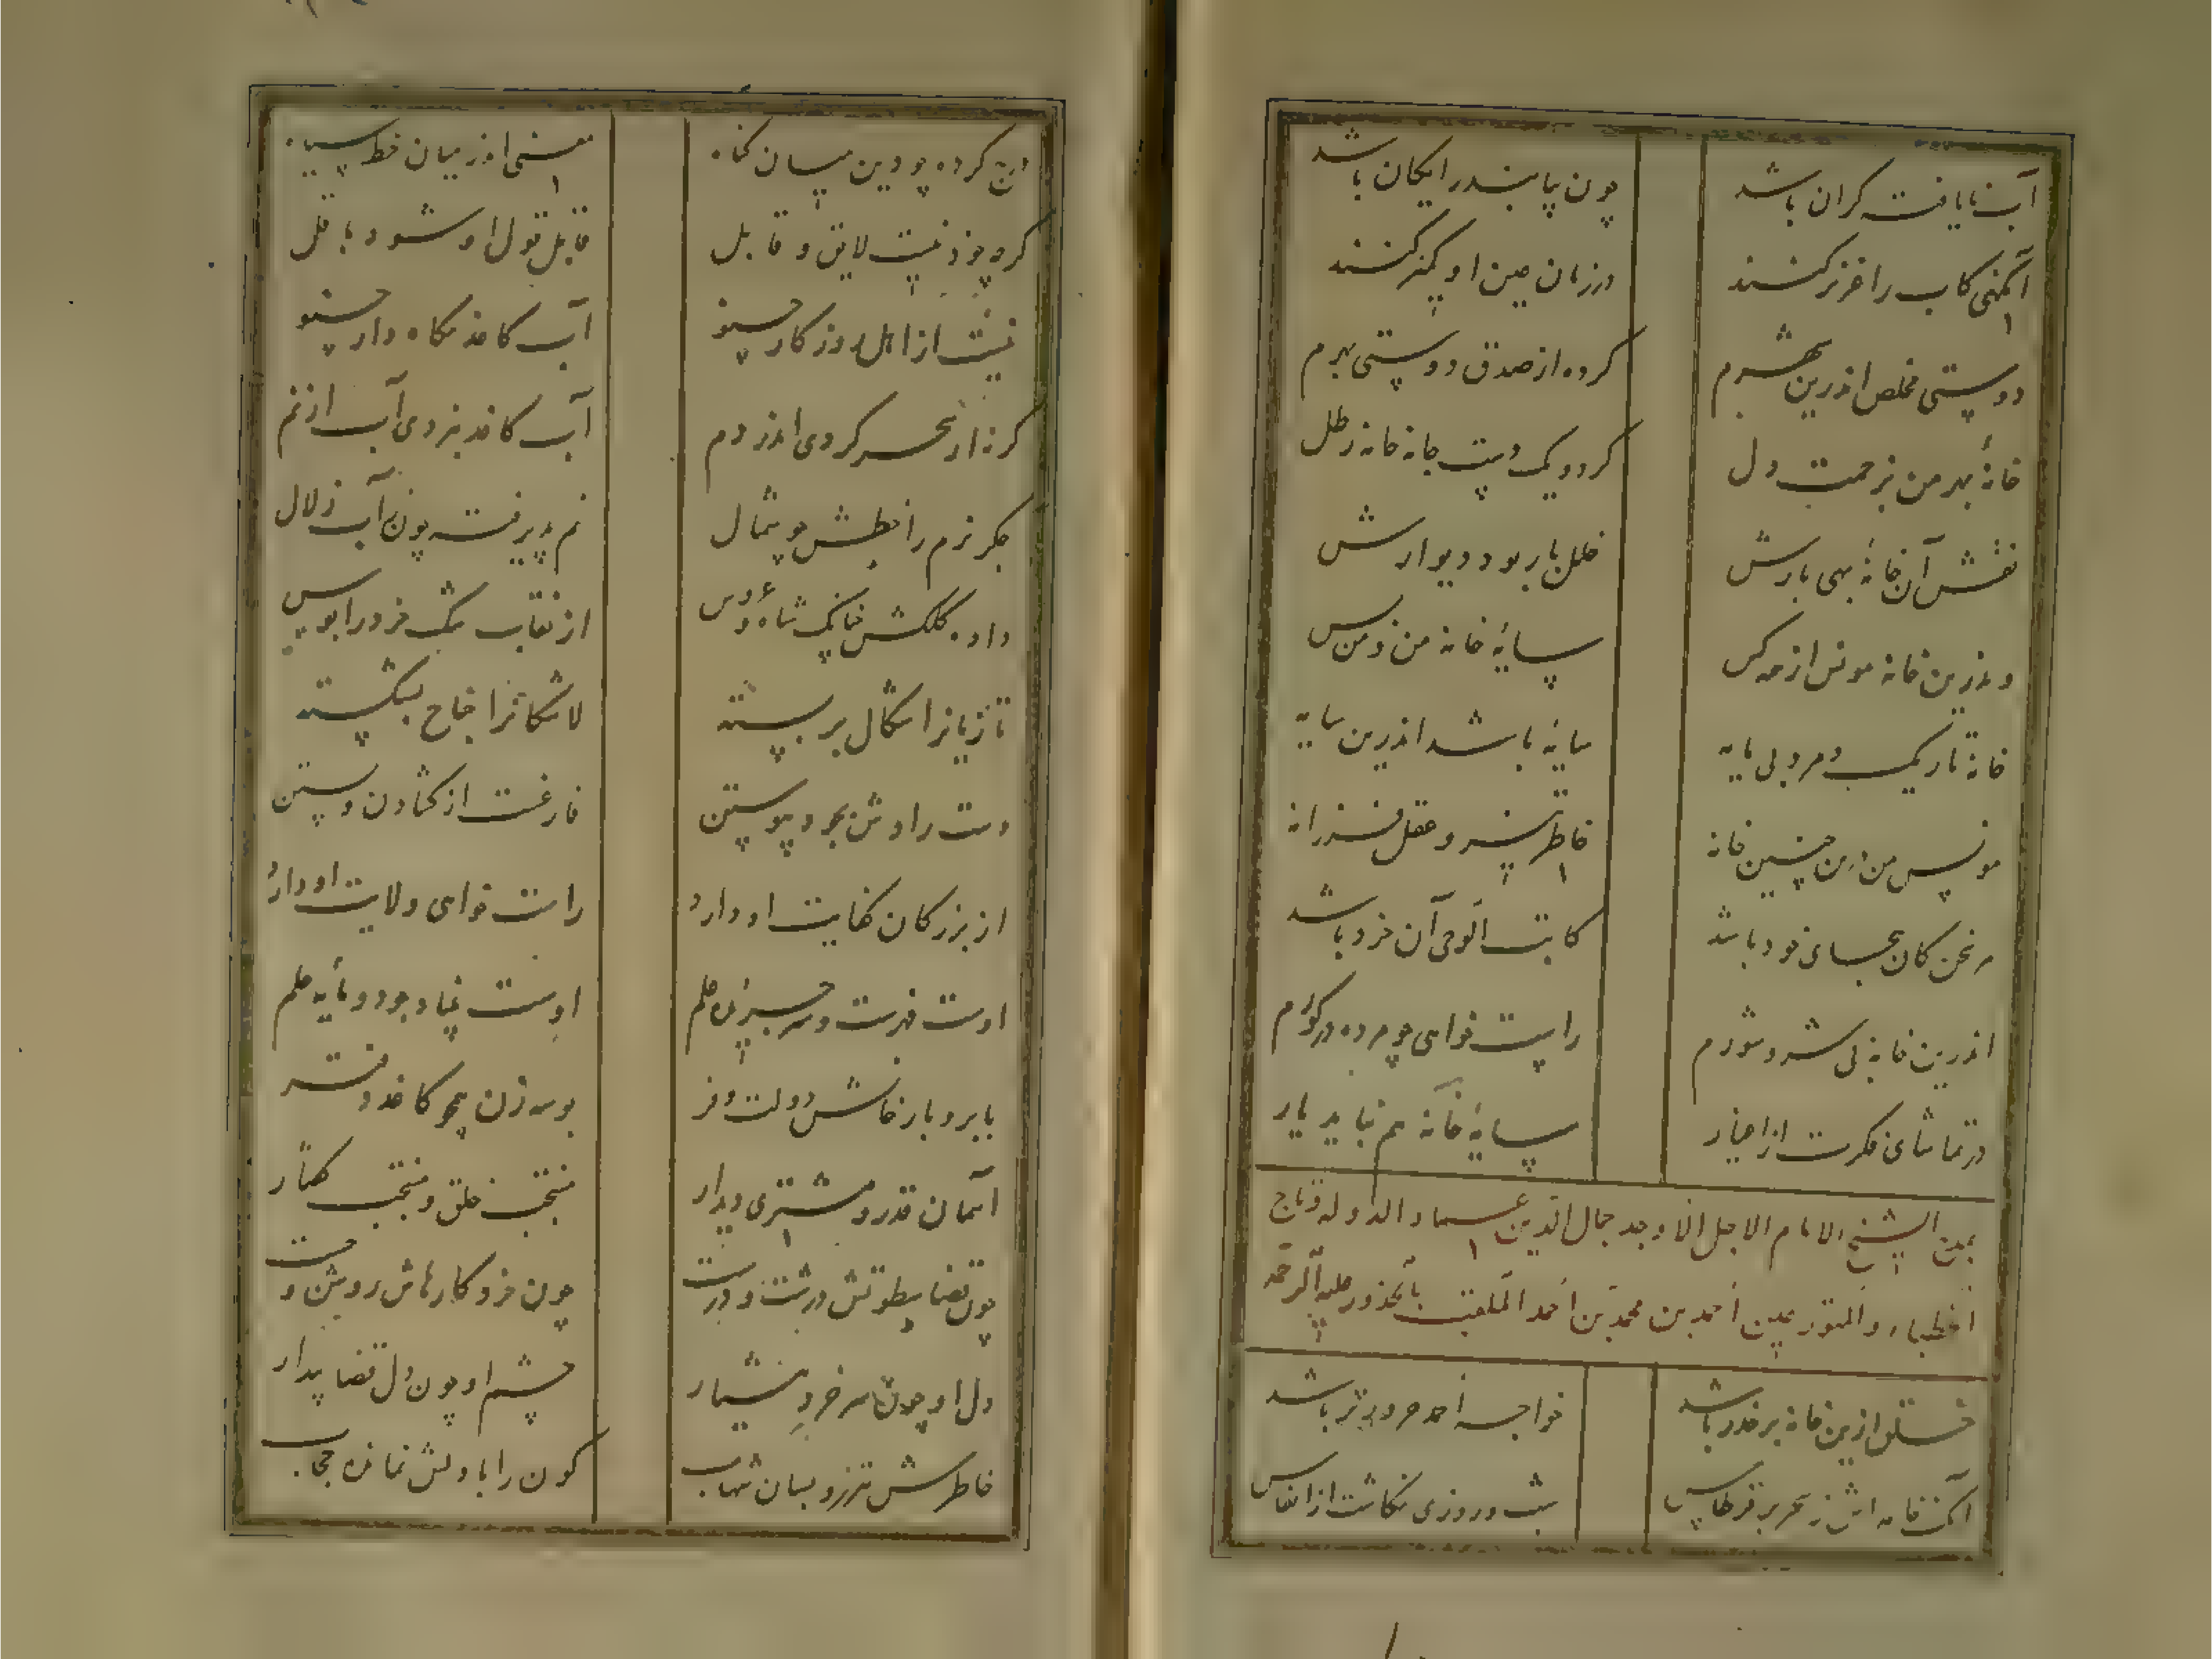 آب نایافت کران باشد چون بیابند رایکان باشد
آنکهی کاب را عزیز کنند در زمان حین او کمیز کنند
دوستی مخلص اندرین شهرم کرده از صدق دوستی بهرم
خانهٔ بهر من بزحمت دل کرد و یک پوست خانه خانه ز ظل
نقش آن خانهٔ بهی بارش ظلل بار بود دیوارش
وندرین خانه مونس از همه کس سایهٔ خانهٔ من و من بس
خانهٔ تاریک و مرد بی مایه سایهٔ باشد اندرین سایه
مونس من درین چنین خانه خاطر تیز و عقل فرزانه
هر سخن کان بجای خود باشد کاتب الوحی آن خرد باشد
اندرین خانه بی شر و شورم راست خواهی چو مرده در کورم
در تماشای فکرت از اخیار سایهٔ خانه هم نباید یار
یمین الشیخ الامام الاجل الاوحد جمال الدین عماد الدوله و تاج
الخطباء و احمد بن محمد بن احمد الملقب بالحذور علیه الرحمه
خواجه احمد مرو بتر باشد
آنک خامه‌اش ز تحریر قرطاس شب در روز می نکاشت از انفاس
درج کرده چو دین میان کناه معنی اندر میان خط سیاه
کرچه خود نیست لایق و قابل قابل قول او شود باقل
نیست از اهل روزکار چنو آب کاغذ نکاه دار چنو
کر نه از سحر کردی اندر دم آب کاغذ ببردی آب از نم
جکر نرم را بخطش چو مثال نم پذیرفت چون آب زلال
داده کلکش چنانک شاه عروس از نقاب مشک خرد را بوس
تازیانرا شکال بر بسته لاشکانرا جناح بشکسته
دست رادش بجود پیوستن فارغست از کشادن و بستن
از بزرکان کفایت او دارد راست خواهی ولایت او دارد
اوست فهرست و سرجریدهٔ علم اوست بنیاد جود و مایه حلم
با بر و بار خامش دولت و فر بوسه زن همچو کاغذ دفتر
آسمان قدر و مشتری دیدار منتجب خلق و منتخب کفتار
چون قضا سطوتش درشت و درست چون خرد کارهاش روشن و چست
دل او چون سر خرد هشیار چشم او چون دل قضا بیدار
خاطرش تیزرو بسان شهاب کون را با دلش نمانده حجاب